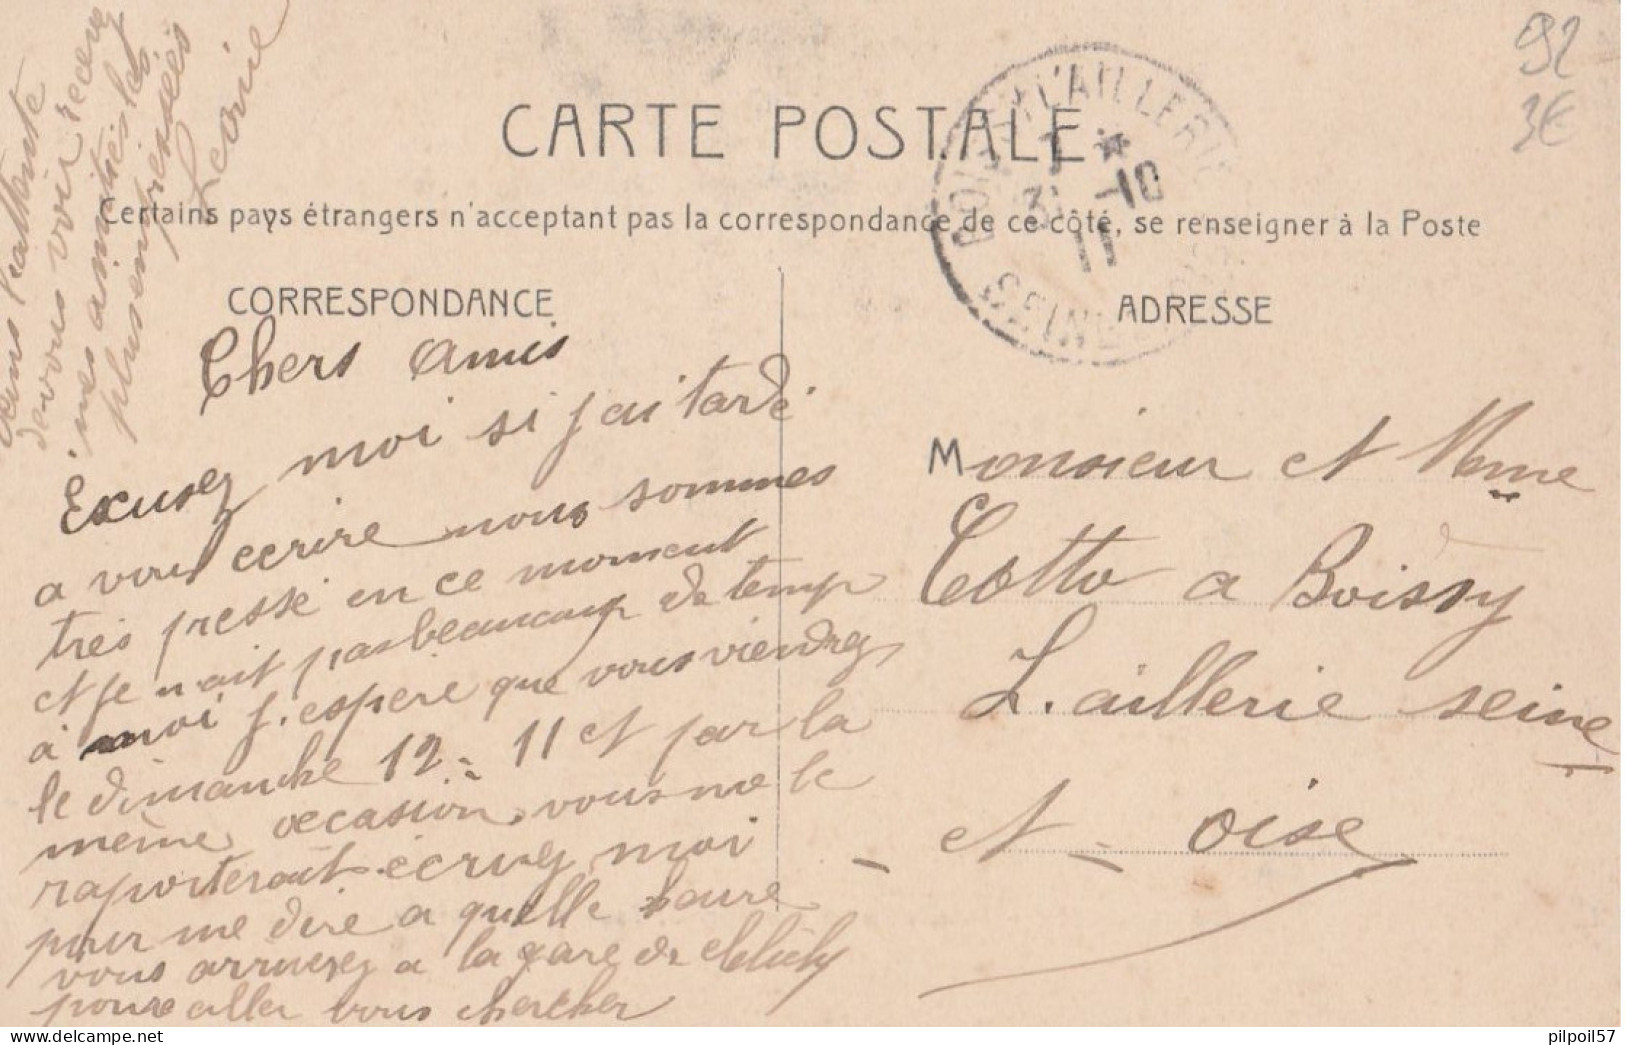 92
3€
CARTE POSTALE
Certains pays étrangers n'acceptant pas la correspondance de ce côté, se renseigner à la Poste
CORRESPONDANCE
Chers Amis
Excusez moi si jai tardé
a vous ecrire nous sommes
très pressé en ce moment
et je n ait pas beaucoup de temp
à moi j.espere que vous viendrez
le dimanche 12-11 et par la
même occasion, vous me le
raporterait. écrivez moi
pour me dire a quelle heure
vous arriverez a la gare de Clichy
pour aller vous chercher
dans l'attente
de vous voir recevez
mes amitiés les
plus empressées
Léonie
ADRESSE
Monsieur et Mme
Cotto a Boissy
L.aillerie seine
- et - oise
BOISSY L'AILLERIE
* 31 -10 11
SEINE
pilpoil57